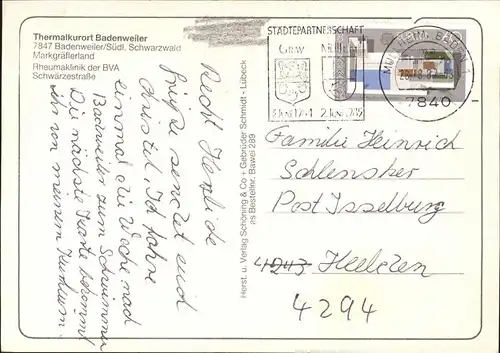 Thermalkurort Badenweiler
7847 Badenweiler/Südl. Schwarzwald
Markgräflerland
Rheumaklinik der BVA
Schwärzestraße
STÄDTEPARTNERSCHAFT
MÜLLHEIM, BADEN 1
7840
Herst. u. Verlag Schöning & Co + Gebrüder Schmidt - Lübeck
Bestellnr. Bawei 289
Recht Herzliche
Grüße sendet euch
Christel. Ich fahre
einmal die Woche nach
Badenweiler zum Schwimmen
Die nächste Karte bekommt
ihr von meinem
Familie Heinrich
Schlensker
Post Isselburg
4243 Heelden
4294